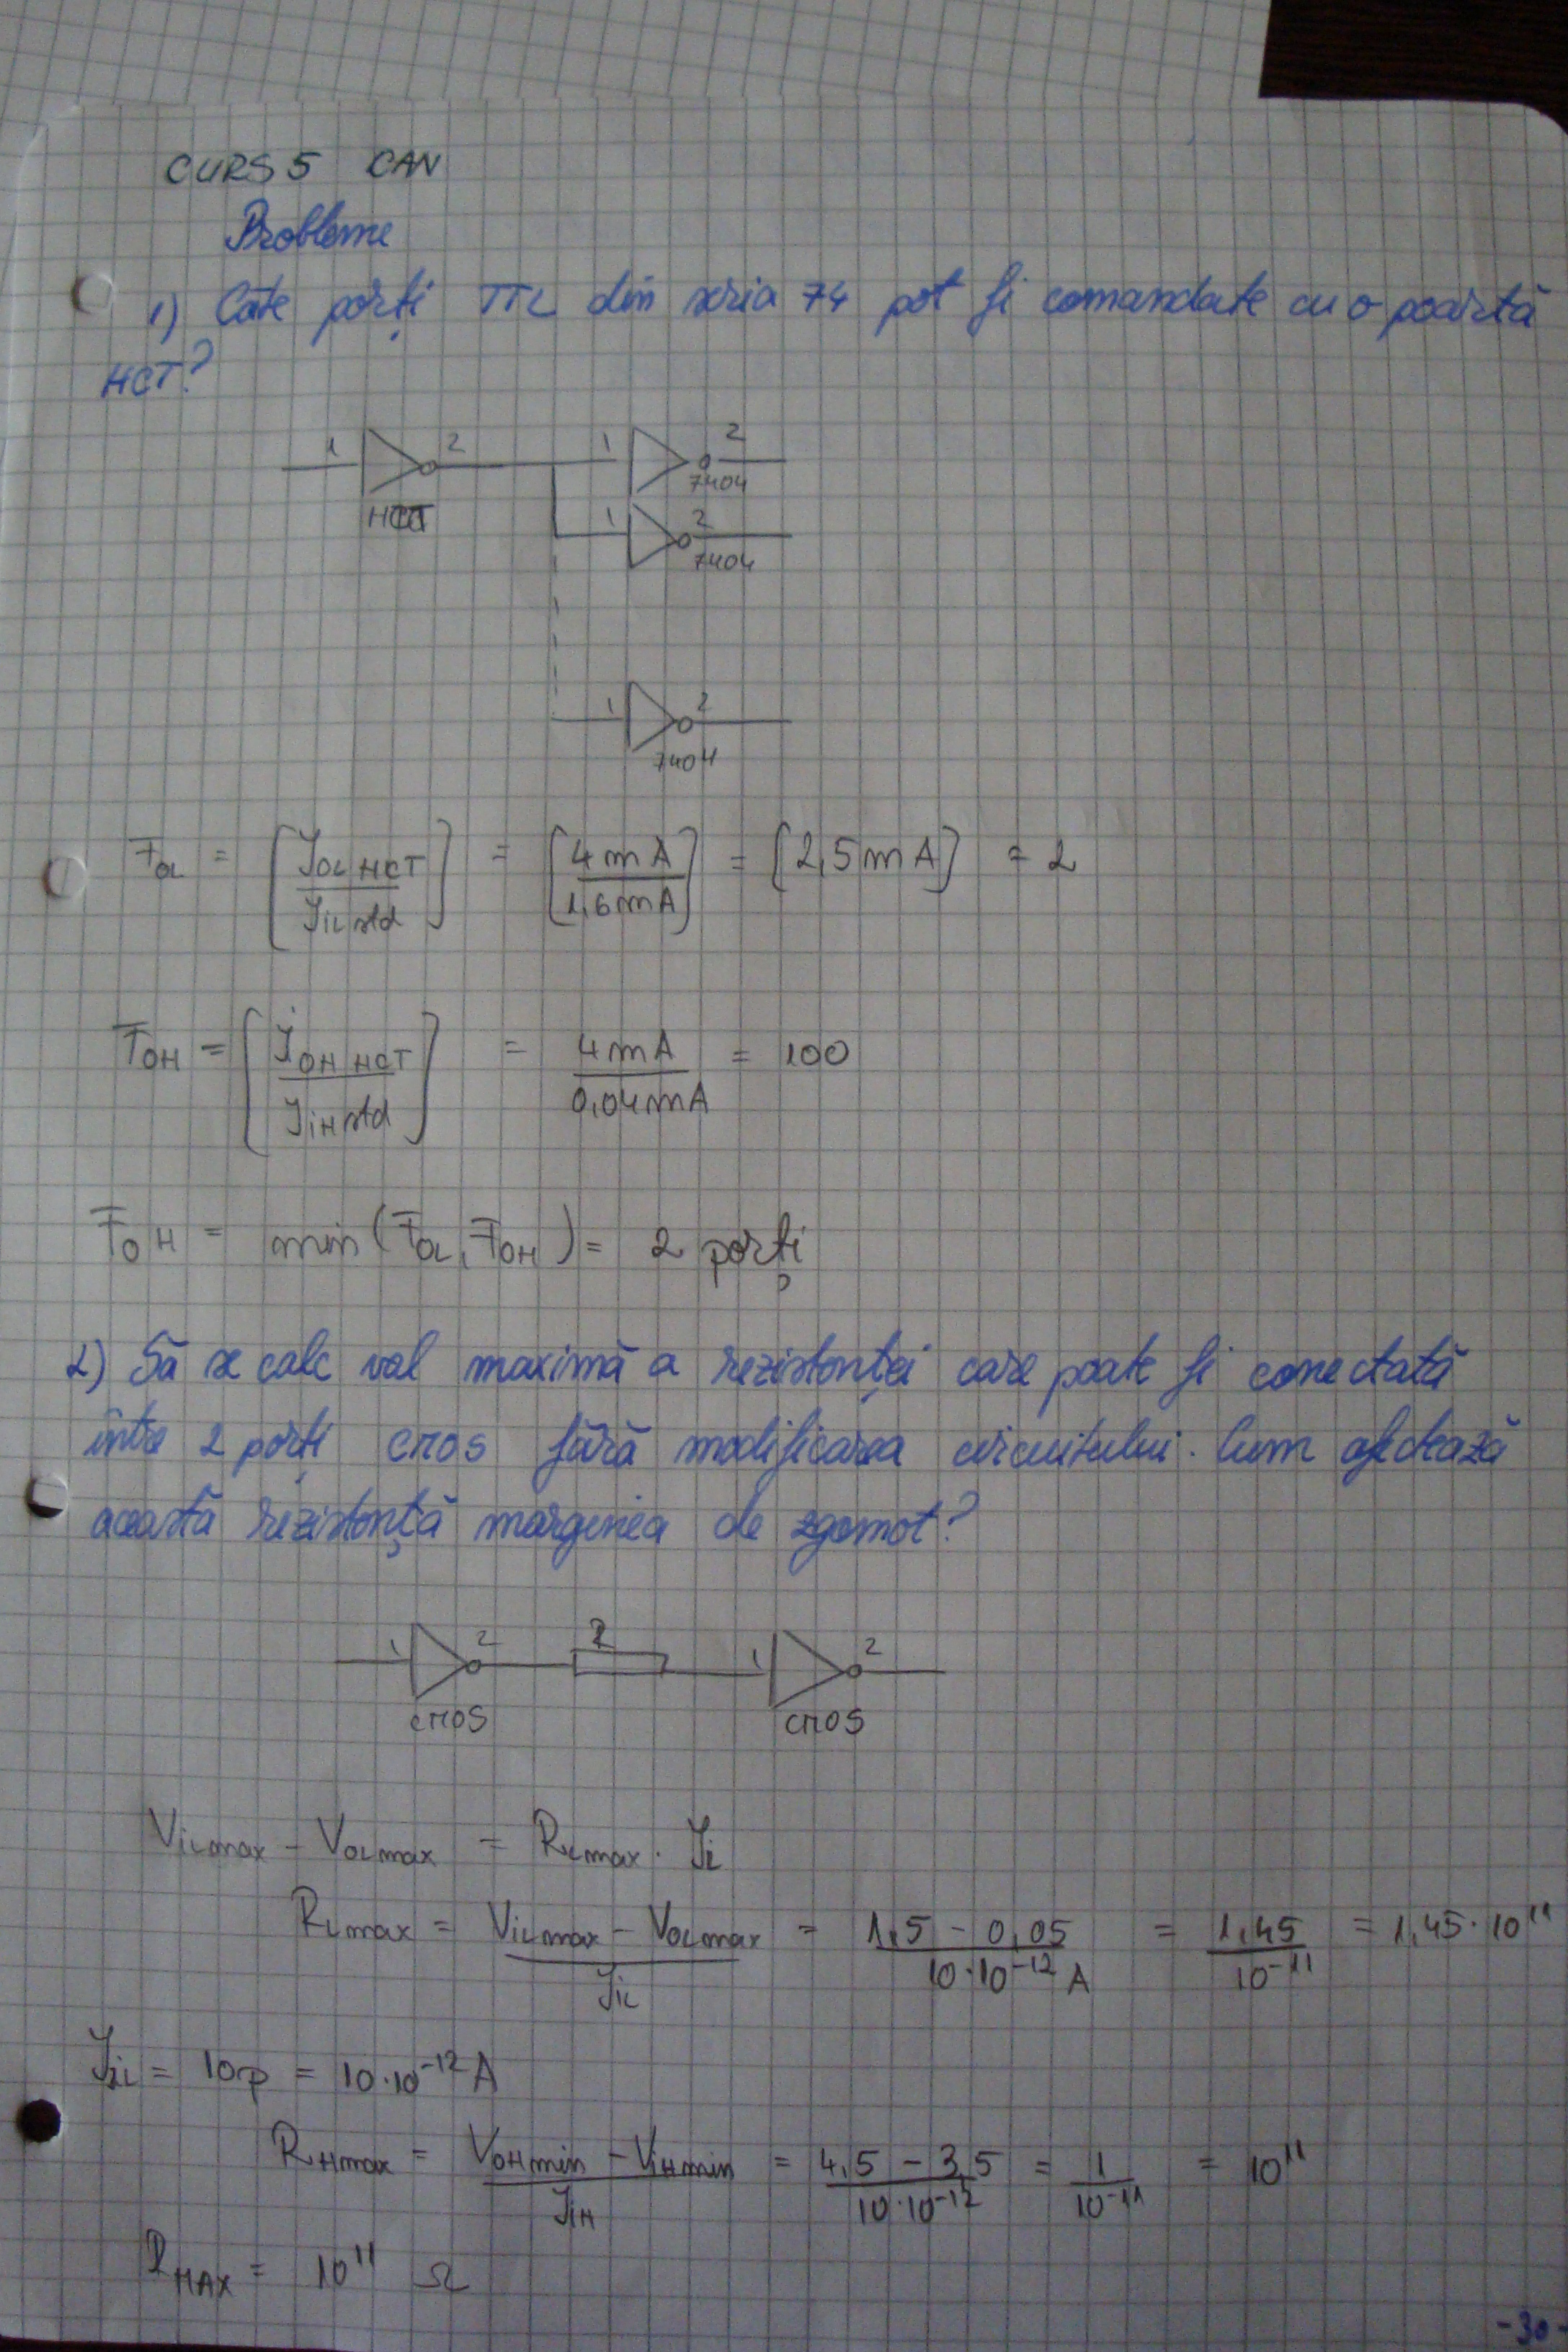 CURS 5 CAN
Probleme
1) Câte porți TTL din seria 74 pot fi comandate cu o poartă
HCT?
1 2 1 2
HCT 7404
1 2
7404
1 2
7404
FOL = [IOL HCT / IIL std] = [4mA / 1,6mA] = [2,5mA] = 2
FOH = [IOH HCT / IIH std] = 4mA / 0,04mA = 100
FOH = min (FOL, FOH) = 2 porți
2) Să se calc val maximă a rezistenței care poate fi conectată
între 2 porți CMOS fără modificarea circuitului. Cum afectează
această rezistență marginea de zgomot?
1 2 R 1 2
CMOS CMOS
VILmax - VOLmax = RLmax · IiL
RLmax = VILmax - VOLmax / IiL = 1,5 - 0,05 / 10·10⁻¹² A = 1,45 / 10⁻¹¹ = 1,45·10¹¹
IiL = 10p = 10·10⁻¹² A
RHmax = VOHmin - ViHmin / IiH = 4,5 - 3,5 / 10·10⁻¹² = 1 / 10⁻¹¹ = 10¹¹
RMAX = 10¹¹ Ω
-30-